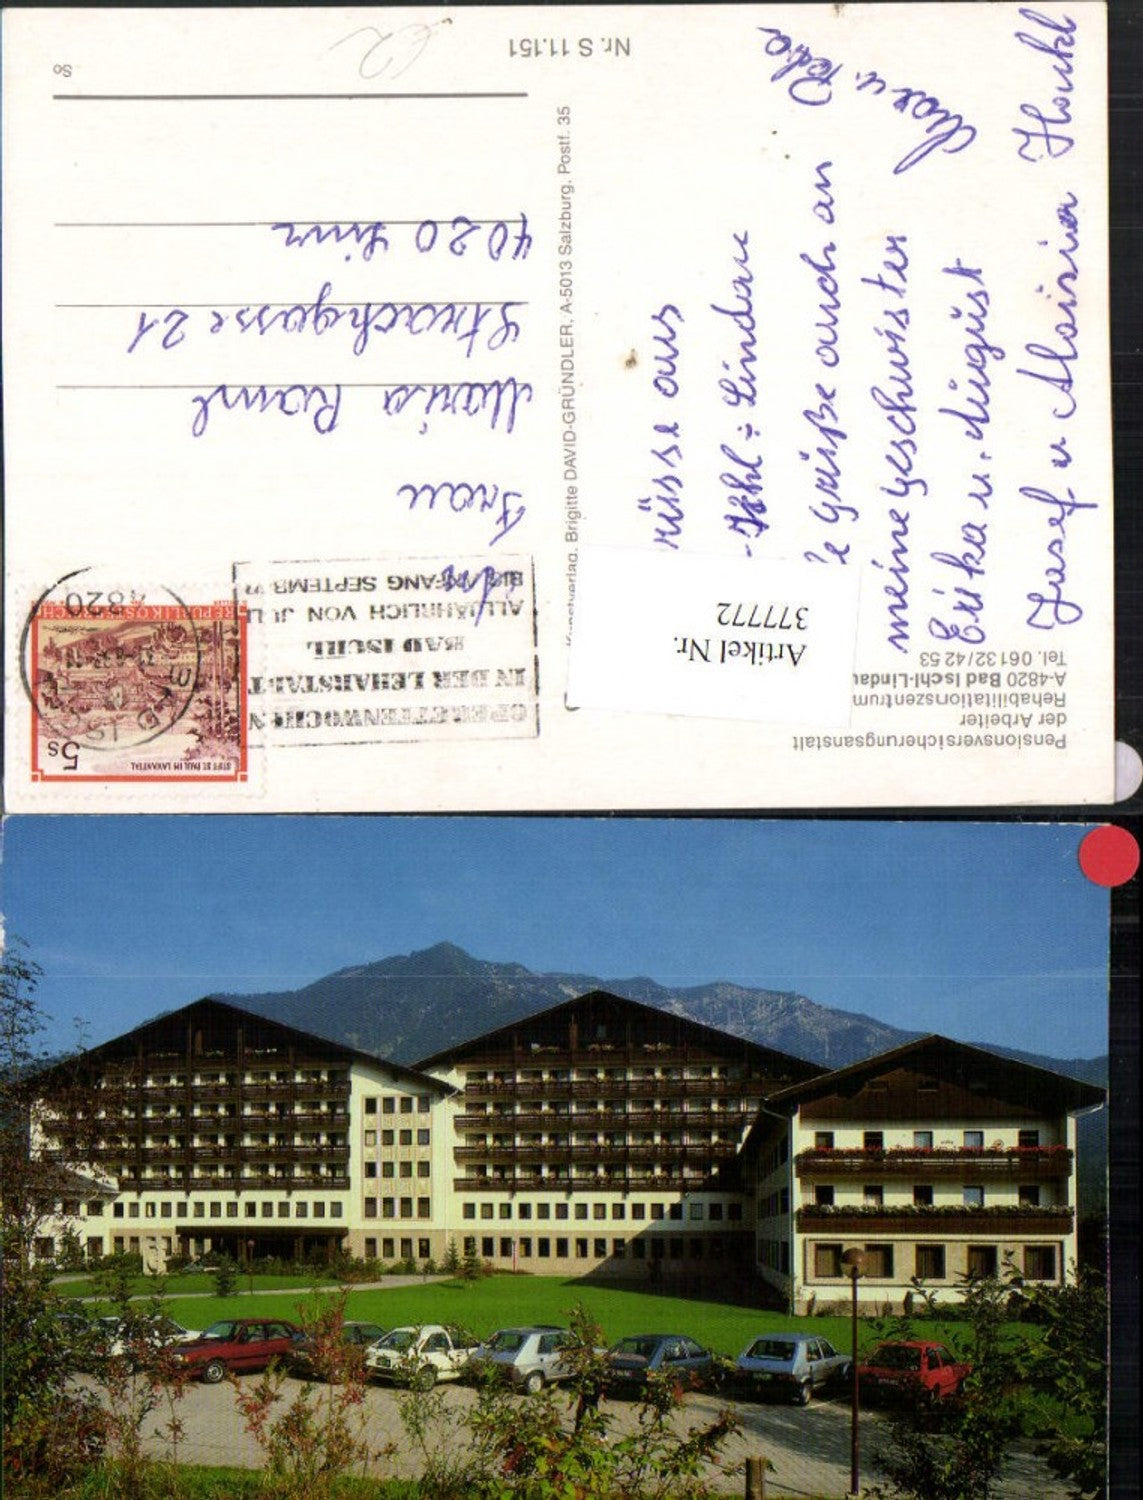 Pensionsversicherungsanstalt
der Arbeiter
Rehabilitationszentrum
A-4820 Bad Ischl-Lindau
Tel. 06132/4253
Artikel Nr.
377772
rüsse aus
Ischl - Lindau
e Grüße auch an
meine Geschwister
Erika u. August
Josef u Aloisia
Kunstverlag Brigitte DAVID-GRÜNDLER, A-5013 Salzburg, Postf. 35
Nr. S 11.151
So
STIFT ST. PAUL IM LAVANTTAL
5s
REPUBLIK ÖSTERREICH
4820
OPERETTENWOCHEN
IN DER LEHARSTADT
BAD ISCHL
ALLJÄHRLICH VON JULI
BIS ANFANG SEPTEMB
Frau
Maria Raml
Starchgasse 21
4020 Linz